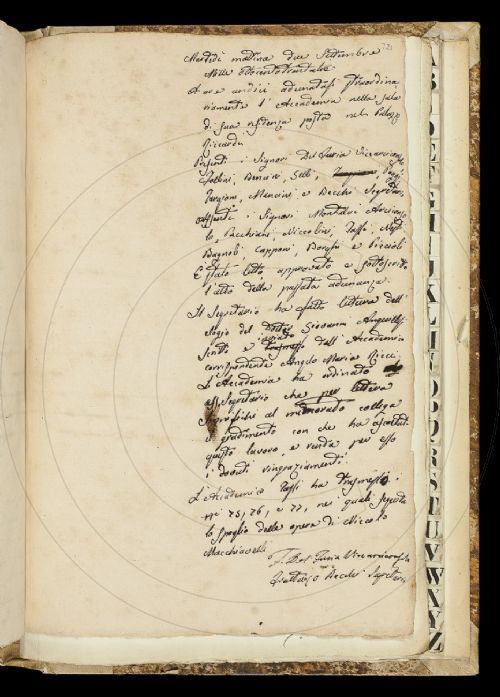 Martedì matina due Settembre
Mille Ottocentotrentatre
A ore undici adunatasi straordina
riamente l'Accademia nella sala
di sua residenza posta nel Palazzo
Riccardi
Presenti i Signori Del Furia Vicearciconsolo
Follini, Bencini, Selli,
Targioni, Mancini e Becchi Segretario
Assenti i Signori Montalvi Arciconso
lo, Pacchiani, Niccolini, Taffi
Bagnoli, Capponi, Borghi e Piccioli
È stato letto, approvato e sottoscritto
l'atto della passata adunanza.
Il Segretario ha fatto lettura dell'
elogio del Dottor Giovanni
scritto e inviato dall'Accademico
corrispondente Angelo Maria Ricci.
L'Accademia ha ordinato
al Segretario che per lettera
significhi al memorato collega
il gradimento con che ha ascoltato
questo lavoro, e renda per esso
i dovuti ringraziamenti.
L'Accademico Taffi ha trasmesso i
ni 75, 76, e 77, nei quali seguita
lo spoglio delle opere di Niccolò
Macchiavelli
F. Del Furia Vicearciconsolo
Fruttuoso Becchi Segretario
A
B
D
E
F
G
I
J
K
L
O
P
Q
R
S
T
U
V
W
X
Y
Z